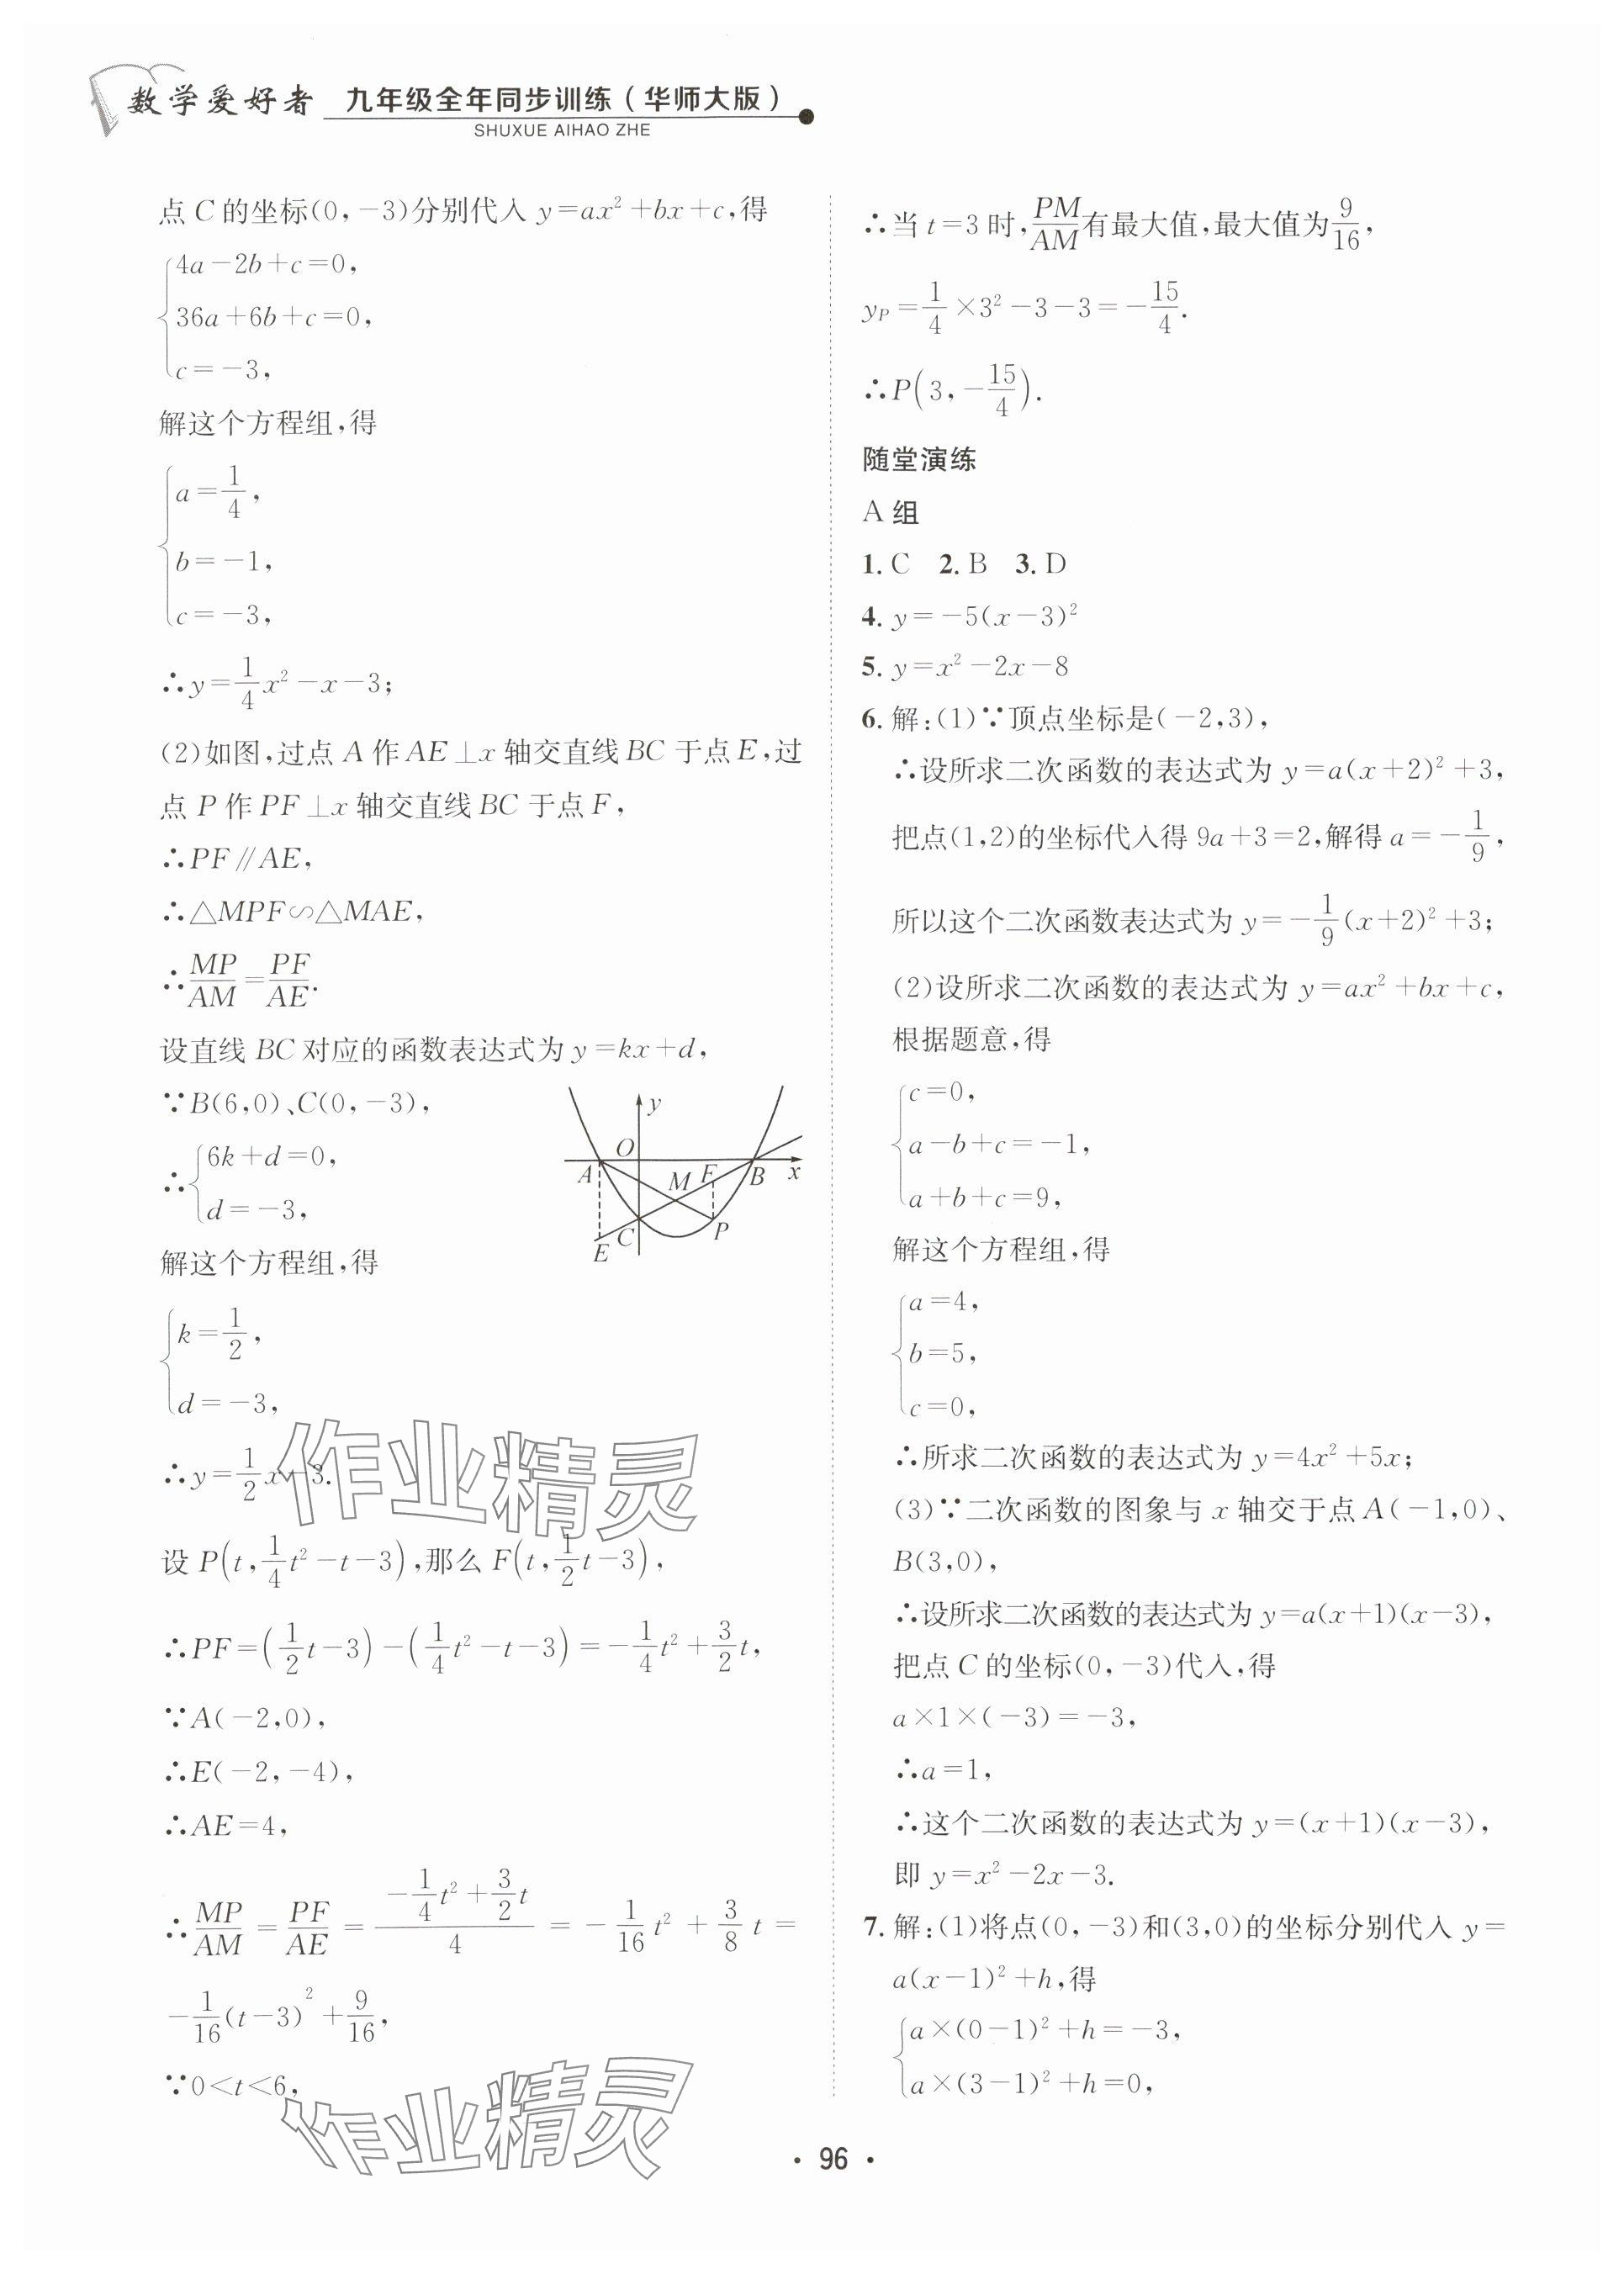 数学爱好者 九年级全年同步训练(华师大版)
SHUXUE AIHAO ZHE
点 C 的坐标(0,-3)分别代入 y=ax²+bx+c,得
4a-2b+c=0,
36a+6b+c=0,
c=-3,
解这个方程组,得
a=1/4,
b=-1,
c=-3,
∴y=1/4x²-x-3;
(2)如图,过点 A 作 AE⊥x 轴交直线 BC 于点 E,过
点 P 作 PF⊥x 轴交直线 BC 于点 F,
∴PF∥AE,
∴△MPF∽△MAE,
∴MP/AM=PF/AE.
设直线 BC 对应的函数表达式为 y=kx+d,
∵B(6,0)、C(0,-3),
∴6k+d=0,
d=-3,
y
O
A
M
F
B
x
C
P
E
解这个方程组,得
k=1/2,
d=-3,
∴y=1/2x-3.
设 P(t,1/4t²-t-3),那么 F(t,1/2t-3),
∴PF=(1/2t-3)-(1/4t²-t-3)=-1/4t²+3/2t,
∵A(-2,0),
∴E(-2,-4),
∴AE=4,
∴MP/AM=PF/AE=(-1/4t²+3/2t)/4=-1/16t²+3/8t=
-1/16(t-3)²+9/16,
∵0<t<6,
∴当 t=3 时,PM/AM有最大值,最大值为9/16,
yP=1/4×3²-3-3=-15/4.
∴P(3,-15/4).
随堂演练
A 组
1. C 2. B 3. D
4. y=-5(x-3)²
5. y=x²-2x-8
6. 解:(1)∵顶点坐标是(-2,3),
∴设所求二次函数的表达式为 y=a(x+2)²+3,
把点(1,2)的坐标代入得 9a+3=2,解得 a=-1/9,
所以这个二次函数表达式为 y=-1/9(x+2)²+3;
(2)设所求二次函数的表达式为 y=ax²+bx+c,
根据题意,得
c=0,
a-b+c=-1,
a+b+c=9,
解这个方程组,得
a=4,
b=5,
c=0,
∴所求二次函数的表达式为 y=4x²+5x;
(3)∵二次函数的图象与 x 轴交于点 A(-1,0)、
B(3,0),
∴设所求二次函数的表达式为 y=a(x+1)(x-3),
把点 C 的坐标(0,-3)代入,得
a×1×(-3)=-3,
∴a=1,
∴这个二次函数的表达式为 y=(x+1)(x-3),
即 y=x²-2x-3.
7. 解:(1)将点(0,-3)和(3,0)的坐标分别代入 y=
a(x-1)²+h,得
a×(0-1)²+h=-3,
a×(3-1)²+h=0,
作业精灵
作业精灵
·96·